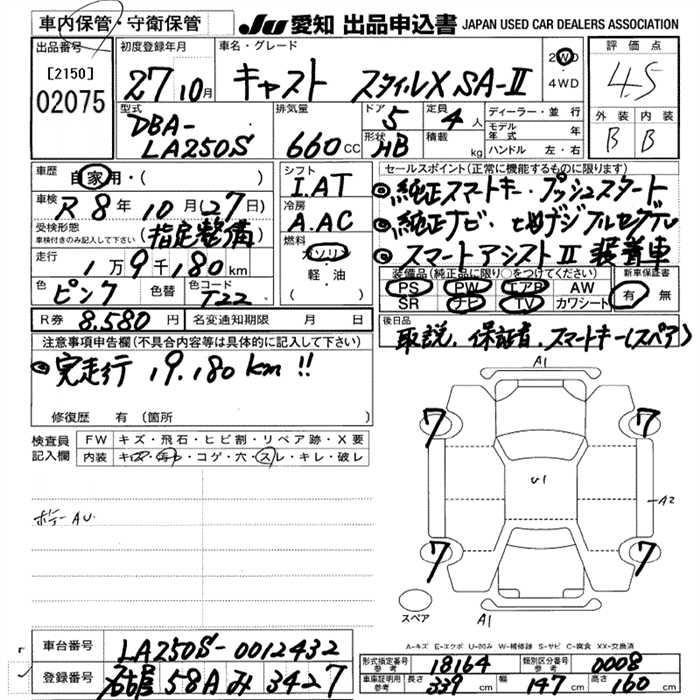 車内保管・守衛保管
JU 愛知 出品申込書 JAPAN USED CAR DEALERS ASSOCIATION
出品番号
[2150]
02075
初度登録年月
27 10月
車名・グレード
キャスト スタイルX SA-Ⅱ
2WD
・
4WD
評価点
4.5
外装 内装
B B
型式
DBA-
LA250S
排気量
660cc
ドア
5
定員
4人
形状
HB
積載
kg
ディーラー・並行
モデル年式 年
ハンドル 左・右
車歴
自家用・( )
車検
R8年10月(27日)
受検形態
車検付きのみ記入して下さい
(指定整備)
走行
1万9千180km
色
ピンク
色替
色コード
T22
シフト
I.AT
冷房
A.AC
燃料
ガソリン
・
軽・油
R券 8.580円
名変通知期限 月 日
セールスポイント(正常に機能するものに限ります)
純正スマートキー・プッシュスタート
純正ナビ・地デジフルセグTV
スマートアシストⅡ 装着車
装備品(純正品に限り○をつけてください)
PS PW エアB AW
SR ナビ TV カワシート
新車保証書
有 無
後日品
取説.保証書.スマートキー(スペア)
注意事項申告欄(不具合内容等は具体的に記入して下さい)
実走行 19.180km!!
修復歴 有(箇所 )
検査員
記入欄
FW キズ・飛石・ヒビ割・リペア跡・X要
内装 キズ・汚レ・コゲ・穴・スレ・キレ・破レ
ボデーAU
A1
7 7
U1
A2
7 7
スペア
A1
A-キズ E-エクボ U-凹み W-補修跡 S-サビ C-腐食 XX-交換済
車台番号 LA250S-0012432
登録番号 名古屋 58A み 3427
形式指定番号
参考
18164
類別区分番号
参考
0008
車庫証明用
参考
長さ 339cm 幅 147cm 高さ 160cm